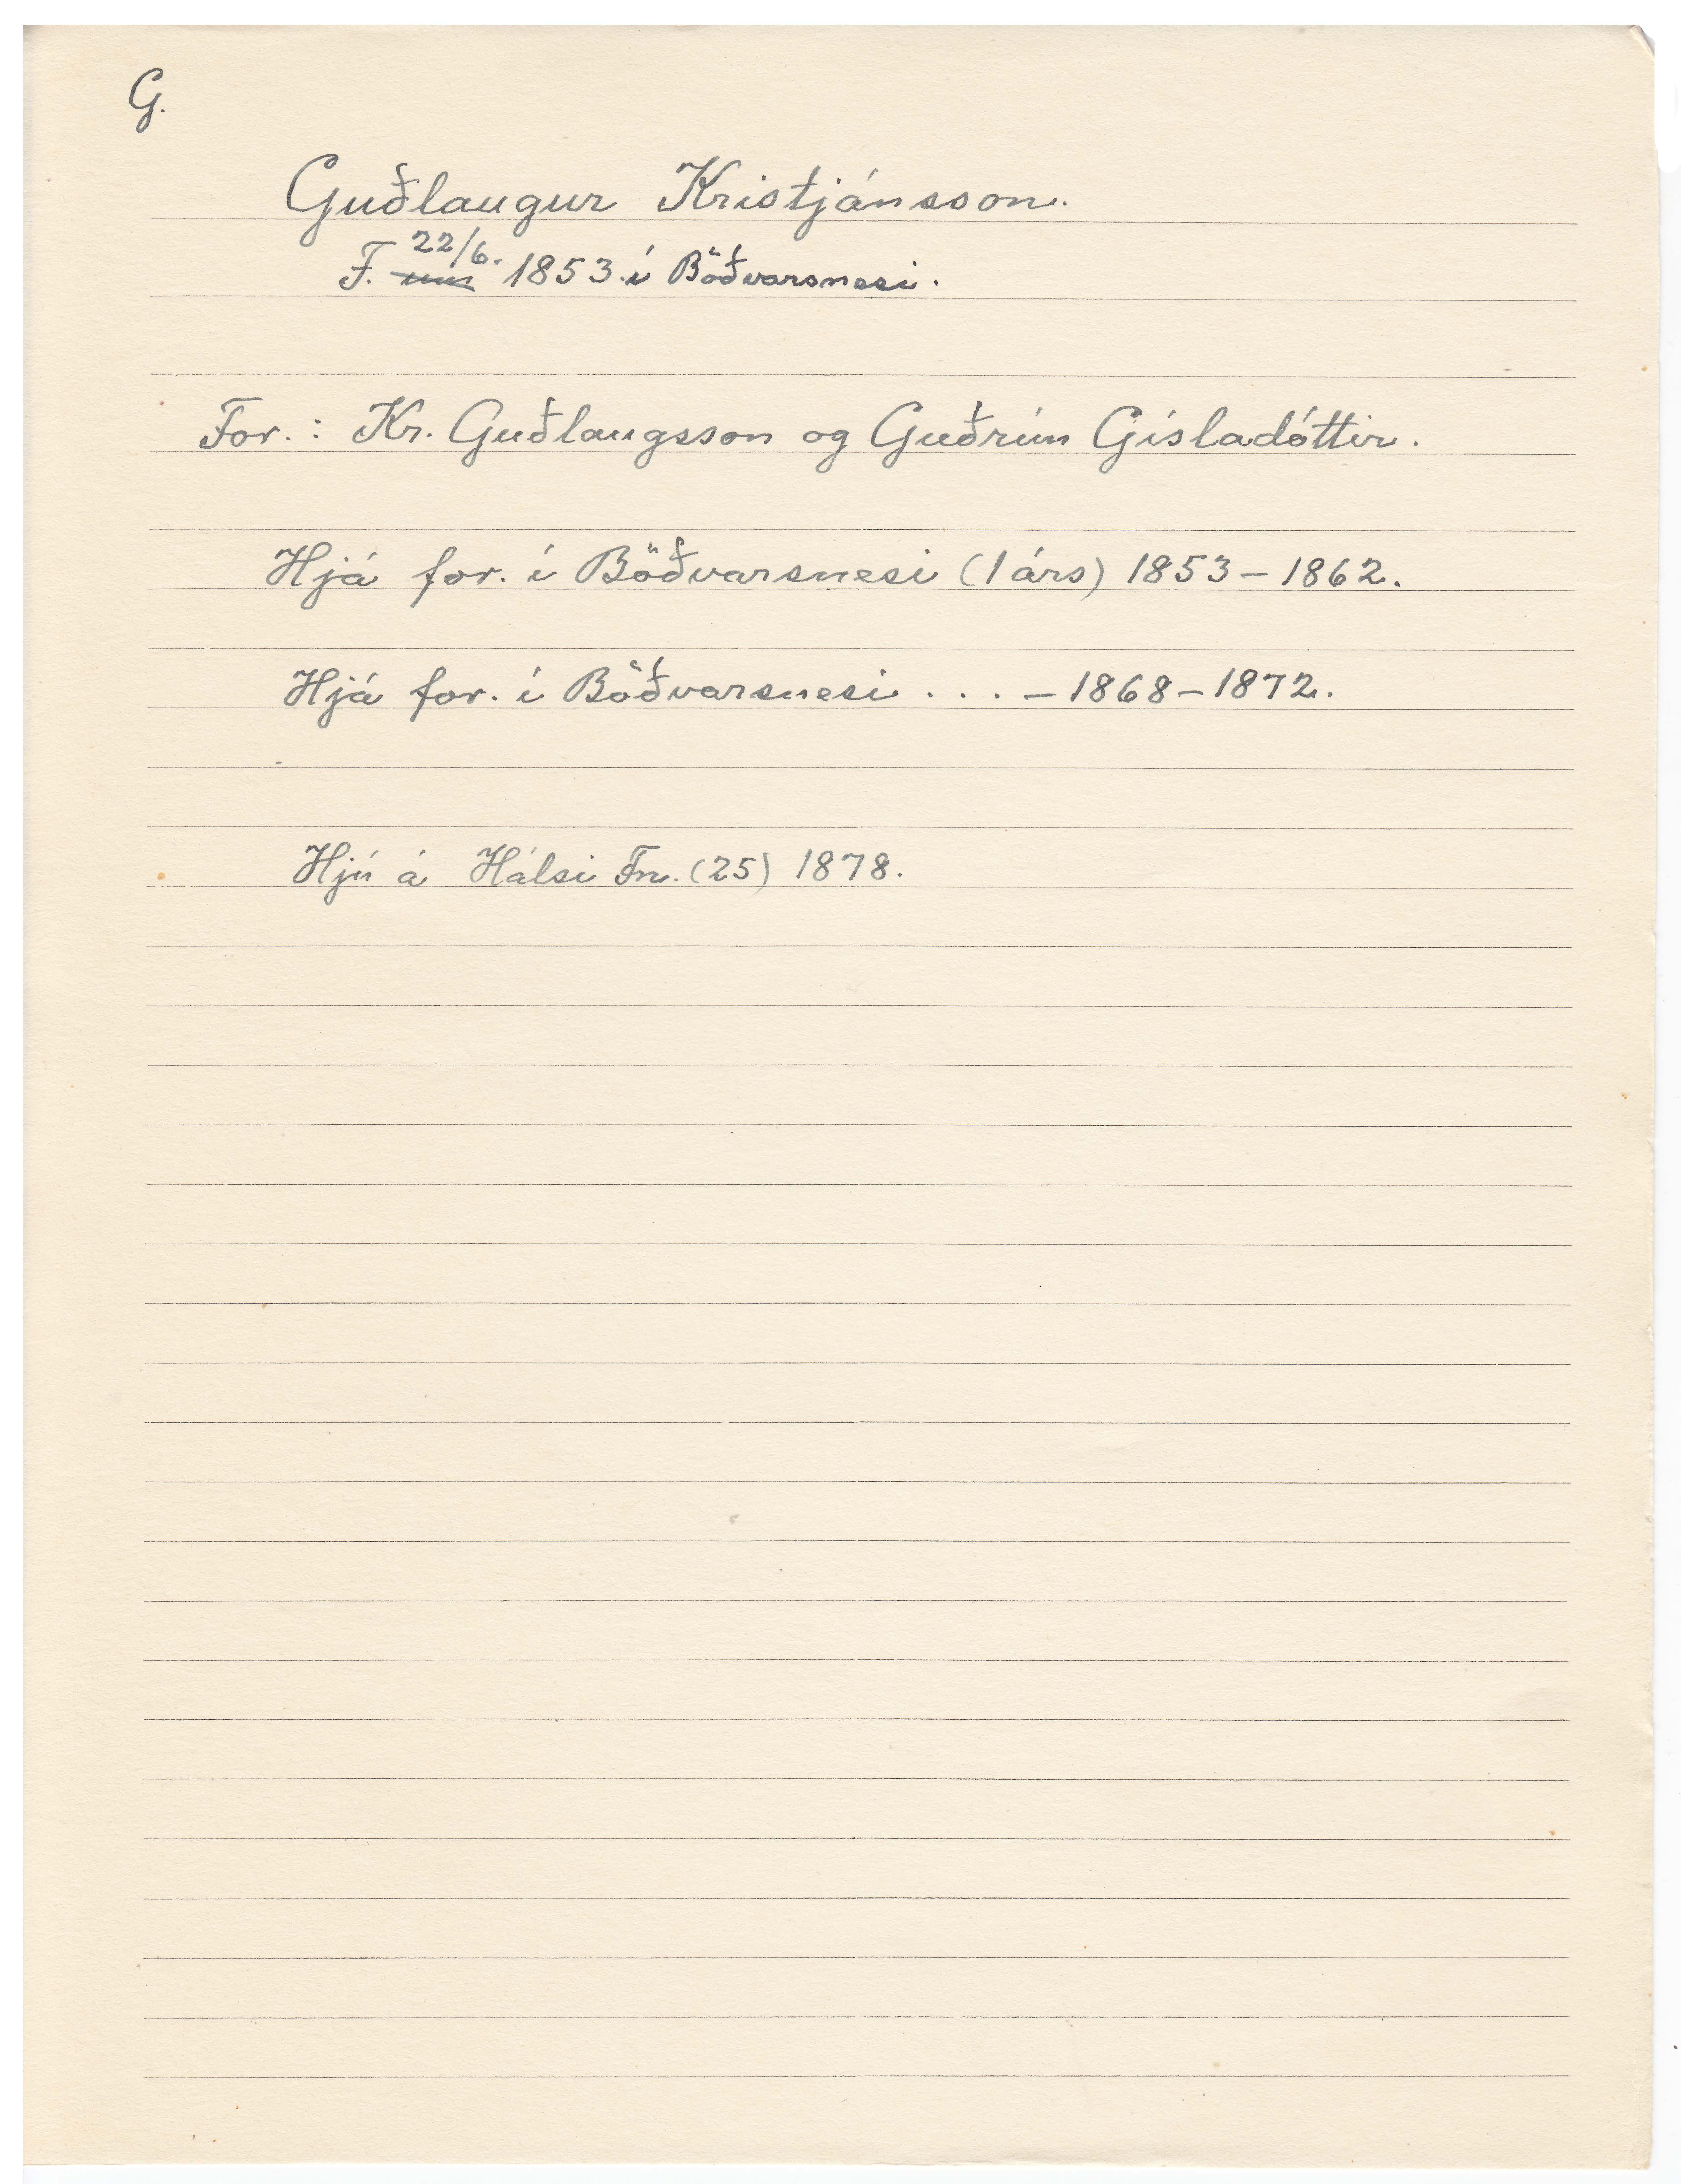 G.
Guðlaugur Kristjánsson.
F. um 22/6. 1853 í Böðvarsnesi.
For.: Kr. Guðlaugsson og Guðrún Gísladóttir.
Hjá for. í Böðvarsnesi (1 árs) 1853–1862.
Hjá for. í Böðvarsnesi . . . – 1868–1872.
Hjú á Hálsi Fn. (25) 1878.